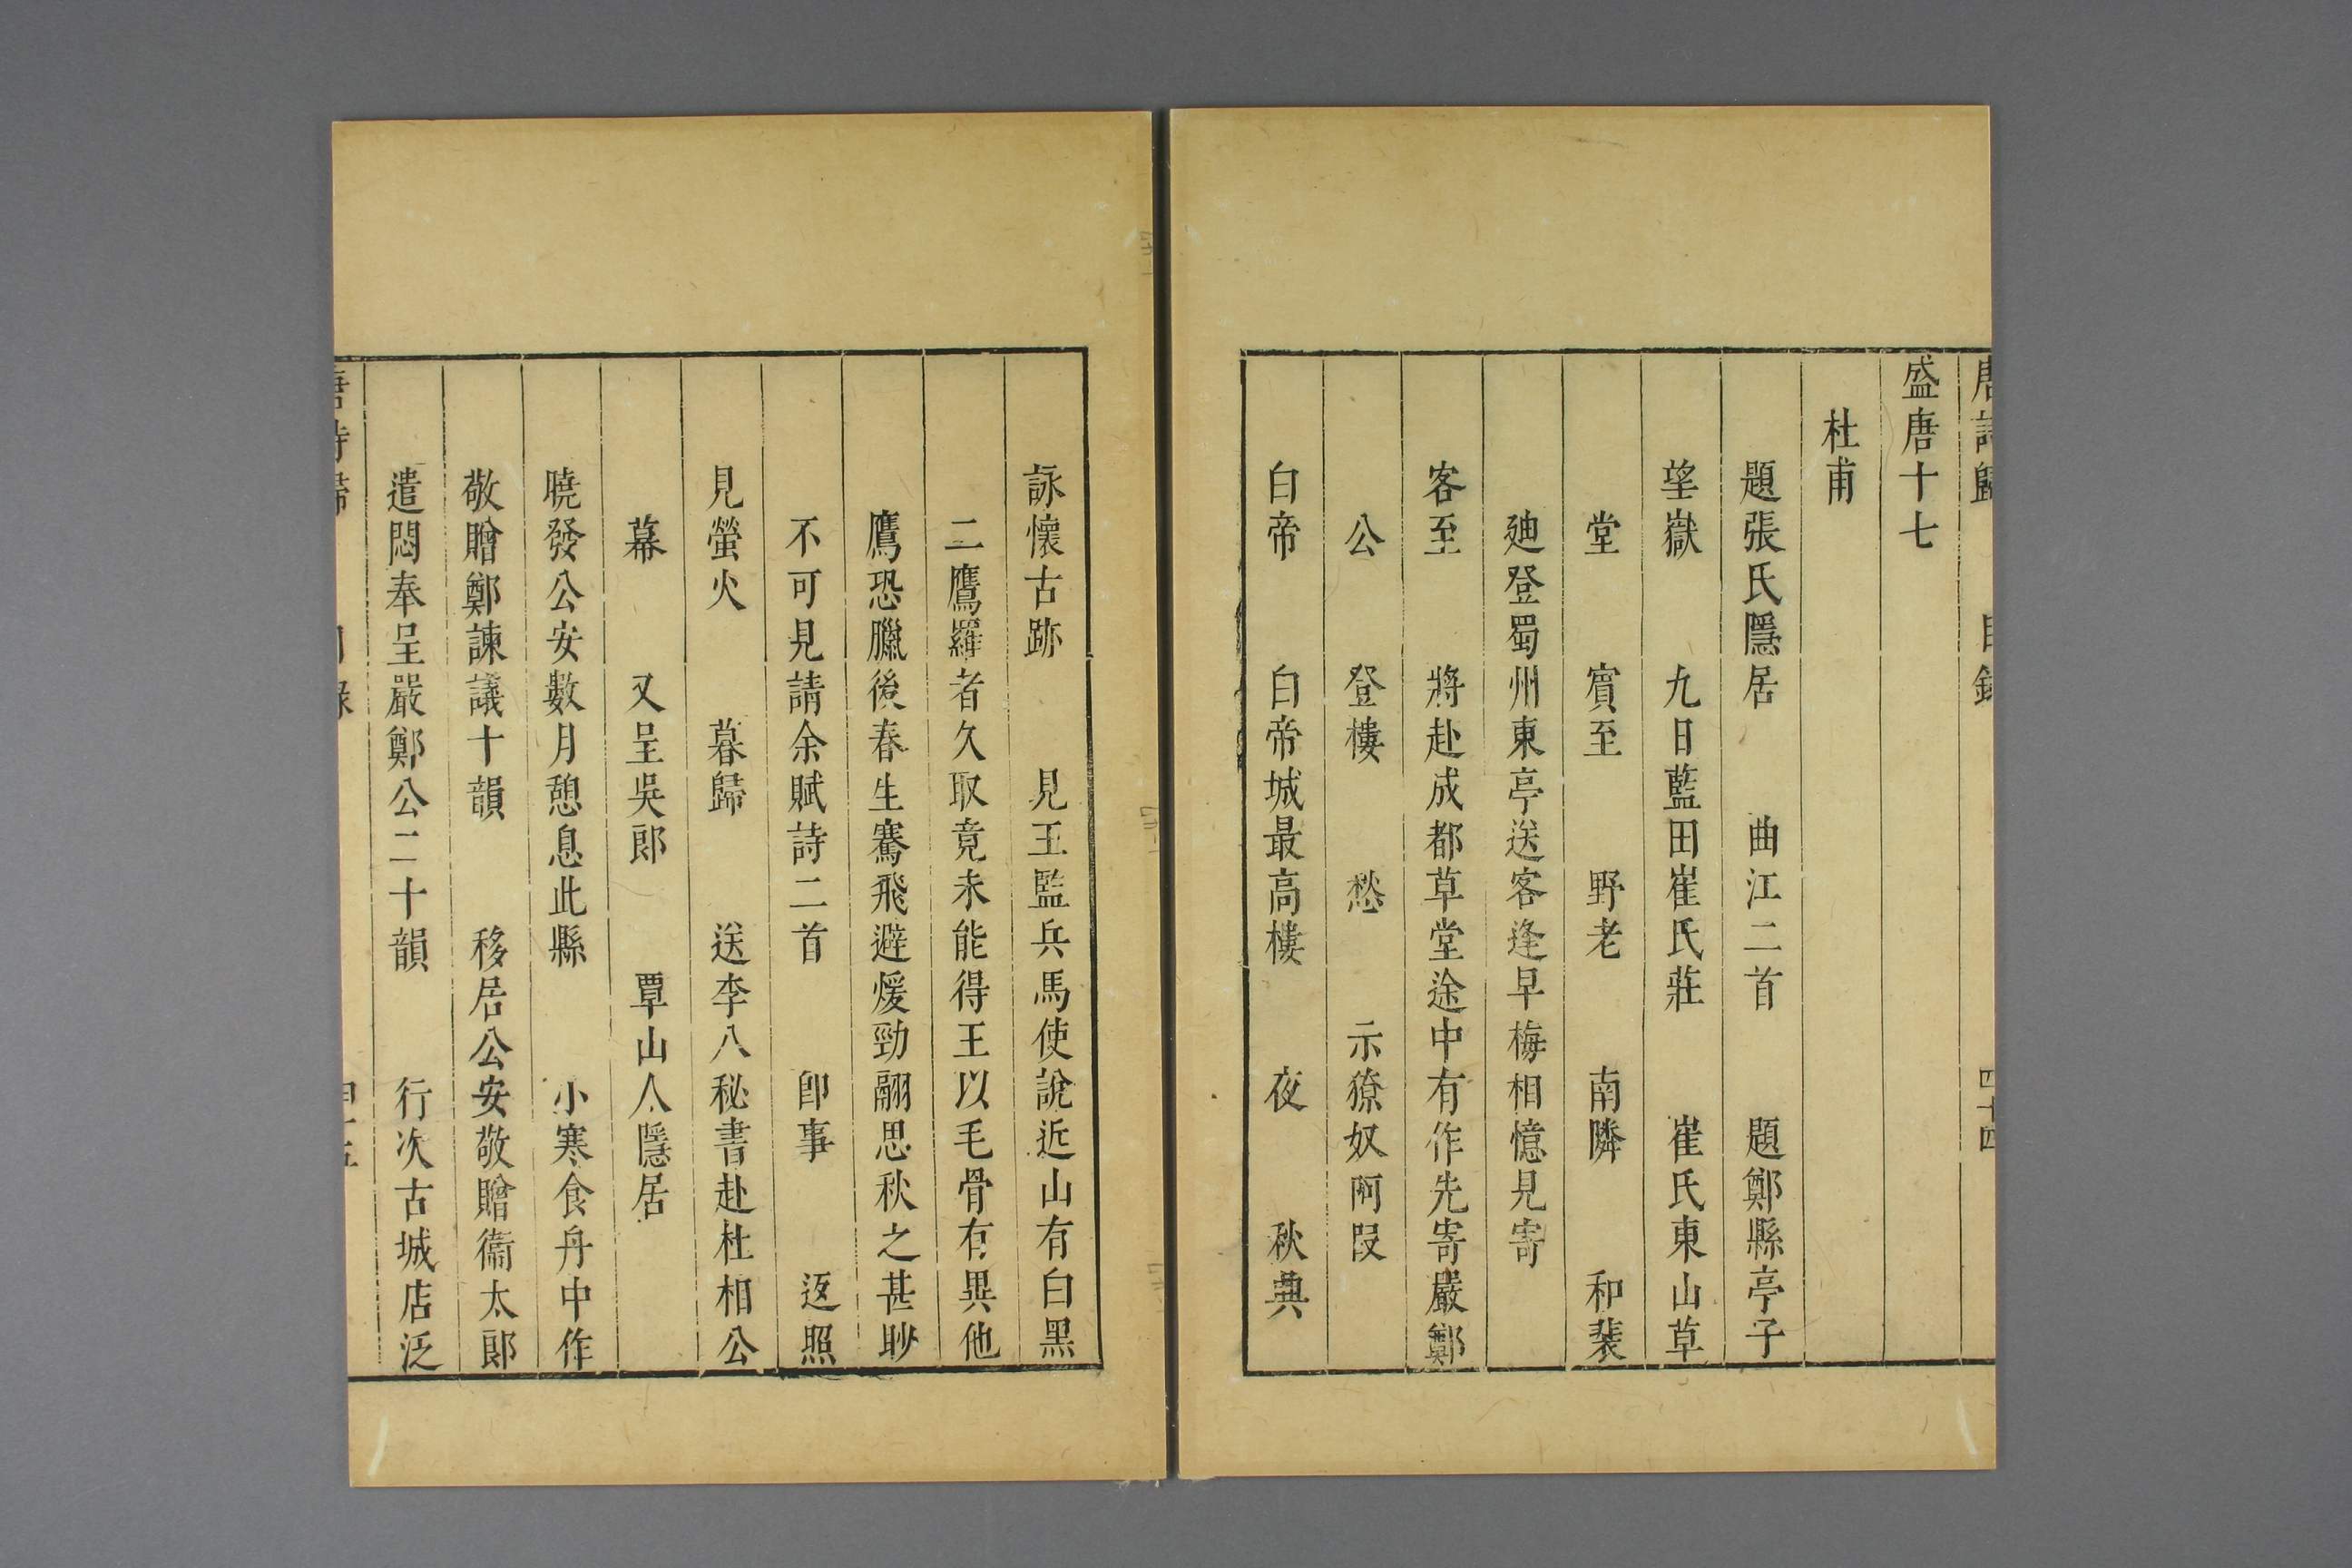 唐詩歸　目錄　四十四
盛唐十七
杜甫
題張氏隱居　曲江二首　題鄭縣亭子
望嶽　九日藍田崔氏莊　崔氏東山草
堂　賓至　野老　南隣　和裴
廸登蜀州東亭送客逢早梅相憶見寄
客至　將赴成都草堂途中有作先寄嚴鄭
公　登樓　愁　示獠奴阿段
白帝　白帝城最高樓　夜　秋興
詠懷古跡　見王監兵馬使說近山有白黑
二鷹羅者久取竟未能得王以毛骨有異他
鷹恐臘後春生騫飛避煖勁翮思秋之甚眇
不可見請余賦詩二首　卽事　返照
見螢火　暮歸　送李八秘書赴杜相公
幕　又呈吳郎　覃山人隱居
曉發公安數月憩息此縣　小寒食舟中作
敬贈鄭諫議十韻　移居公安敬贈衞太郎
遣悶奉呈嚴鄭公二十韻　行次古城店泛
唐詩歸　目錄